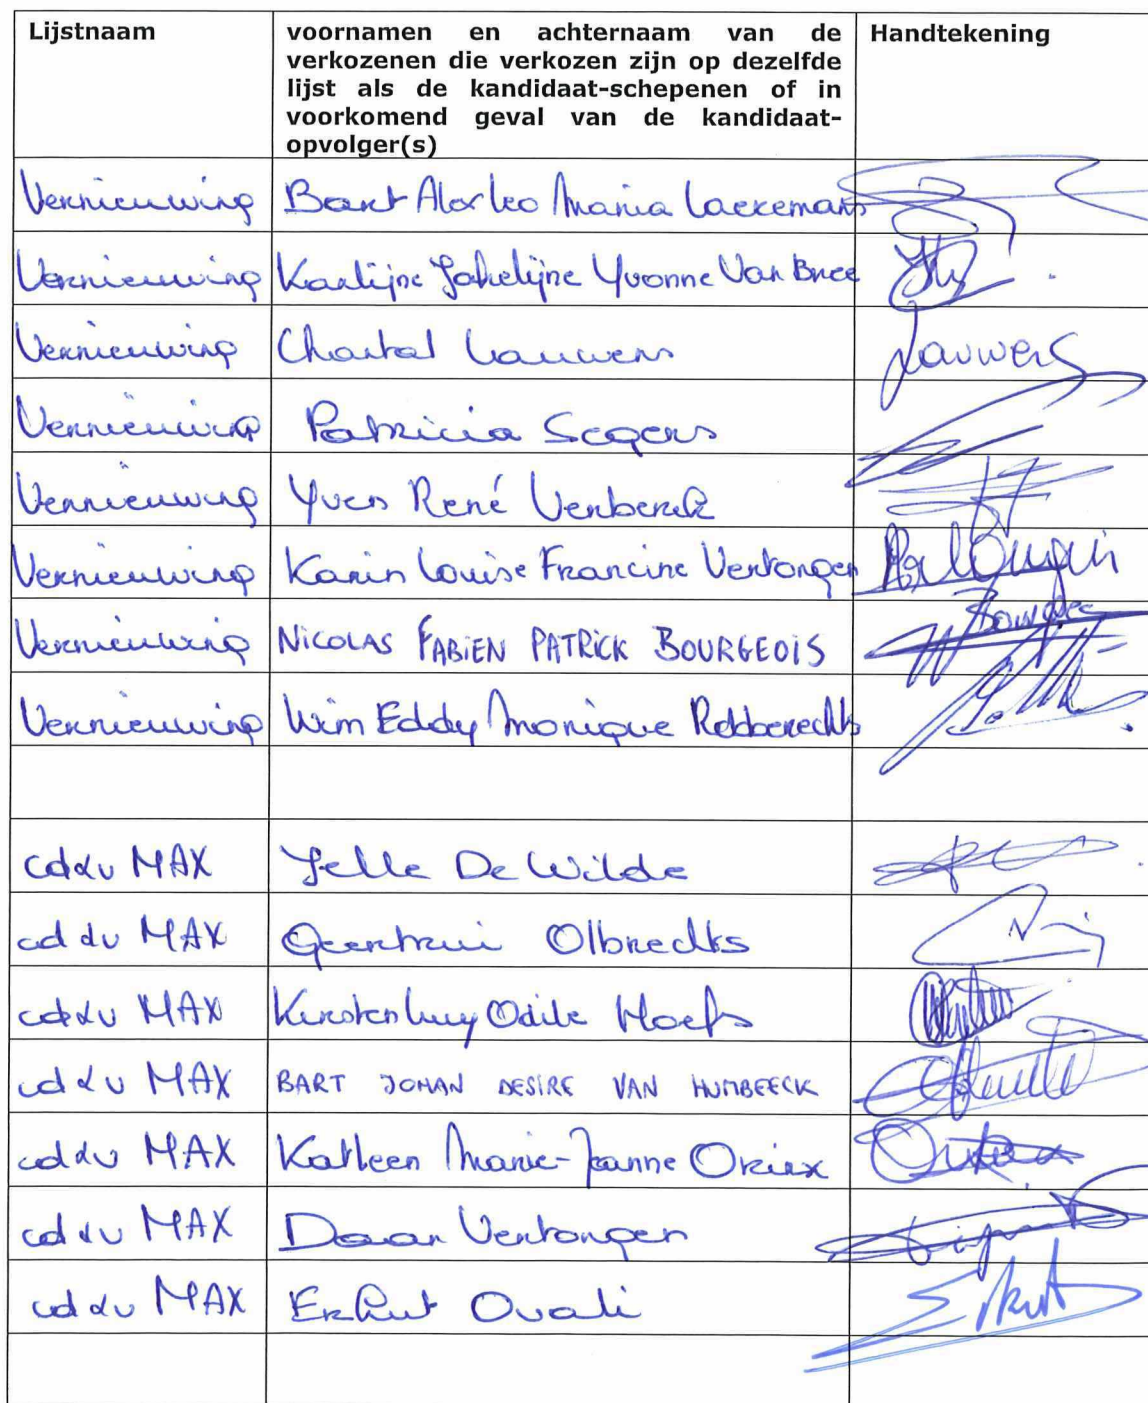 Lijstnaam
voornamen en achternaam van de
verkozenen die verkozen zijn op dezelfde
lijst als de kandidaat-schepenen of in
voorkomend geval van de kandidaat-
opvolger(s)
Handtekening
Vernieuwing Bart Alex Leo Maria Laeremans
Vernieuwing Karlijne Jakelijne Yvonne Van Bree
Vernieuwing Chantal Lauwers Lauwers
Vernieuwing Patricia Segers
Vernieuwing Yves René Verberck
Vernieuwing Karin Louise Francine Vertongen
Vernieuwing NICOLAS FABIEN PATRICK BOURGEOIS
Vernieuwing Wim Eddy Monique Robberechts
cd&v MAX Jelle De Wilde
cd&v MAX Geertrui Olbrechts
cd&v MAX Kirsten Lucy Odile Hoefs
cd&v MAX BART JOHAN DESIRE VAN HUMBEECK
cd&v MAX Katleen Marie-Jeanne Orinx
cd&v MAX Daan Vertongen
cd&v MAX Erkut Ovali Erkut